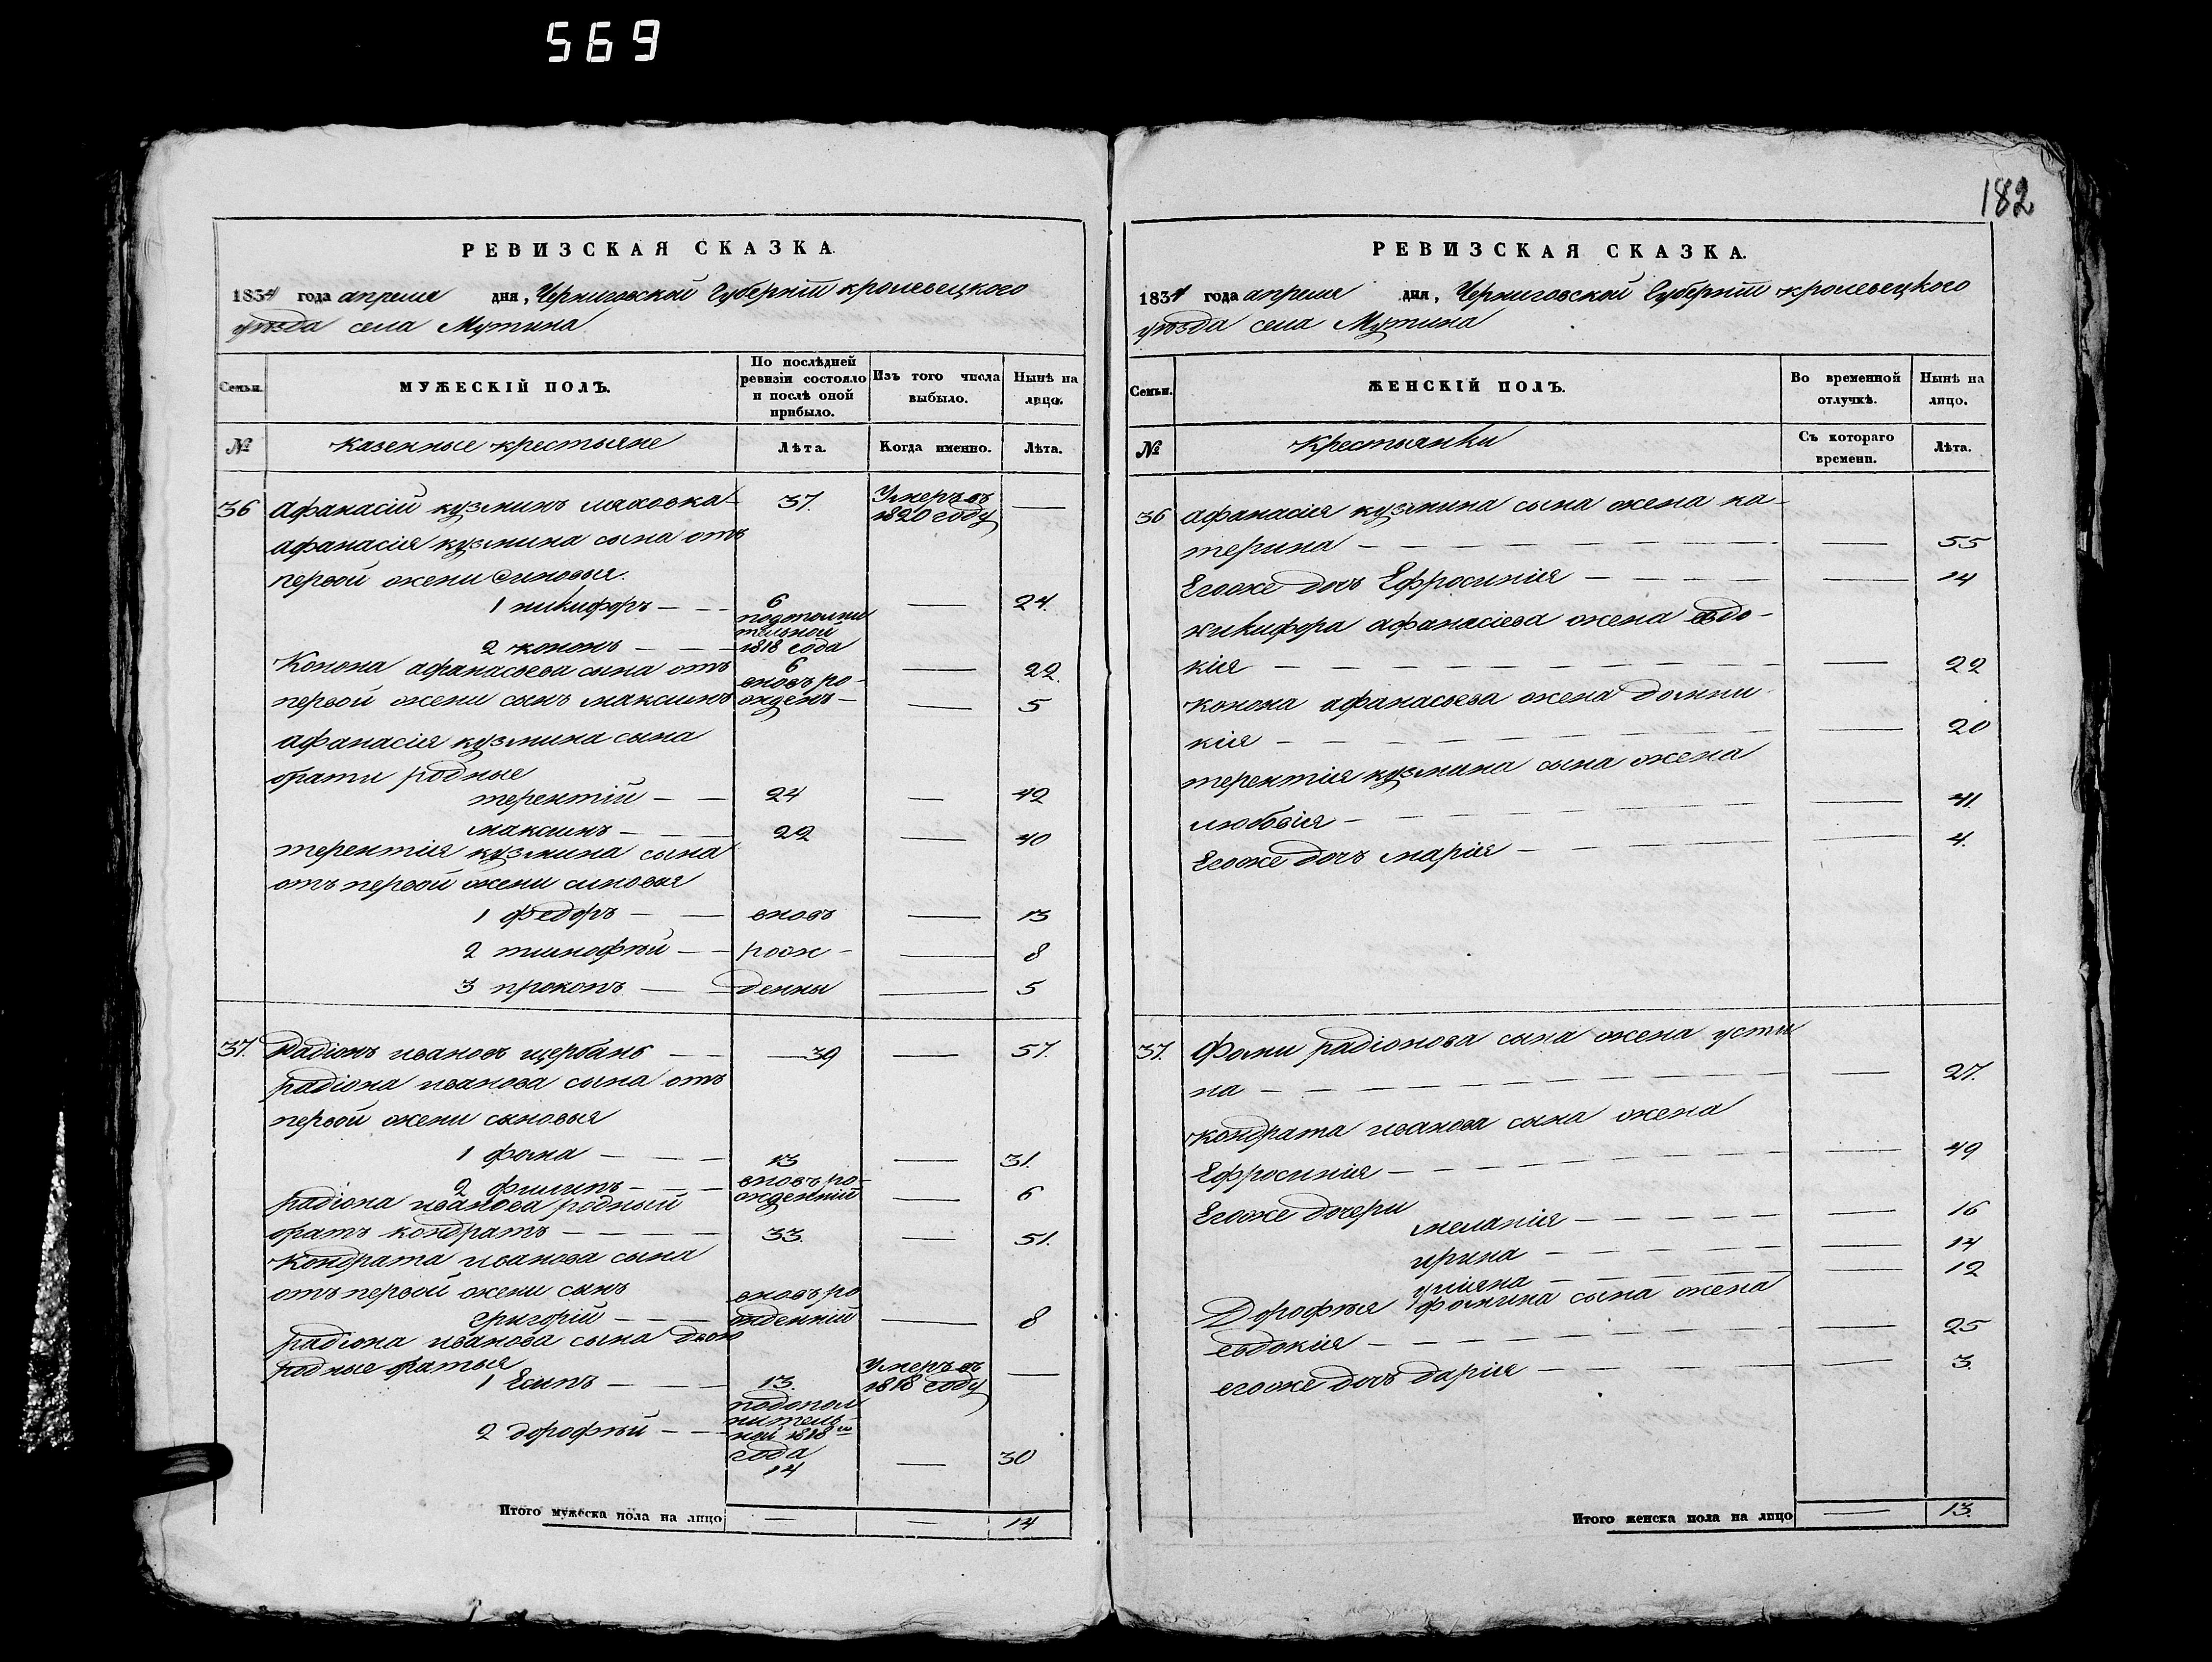 569
182
РЕВИЗСКАЯ СКАЗКА.
1834 года апреля дня, Черниговской Губерніи кролевецкого
уѣзда села Мутина
Семьи.
МУЖЕСКІЙ ПОЛЪ.
По послѣдней ревизіи состояло и послѣ оной прибыло.
Изъ того числа выбыло.
Нынѣ на лицо.
№
казенные крестьяне
Лѣта.
Когда именно.
Лѣта.
36 Афанасій кузминъ ляховка 37. Умеръ въ 1820 году —
афанасія кузмина сына отъ
первой жени синовья.
1 никифоръ — — 6 — 24.
2 кононъ — — подополнительной 1818 года 6 — 22.
Конона афанасьева сына отъ
первой жени сынъ максимъ вновь рожденъ — — 5
афанасія кузмина сына
брати родные
терентій — — 24 — 42
максимъ — — 22 — 40
терентия кузмина сына
отъ первой жени синовья
1 федоръ — — вновъ — 13
2 тимофѣй — — рож- — 8
3 прокопъ — — денны — 5
37. Радіонъ ивановъ щербань — — 39 — 57.
радіона иванова сына отъ
первой жени сыновья
1 фома — — 13 — 31.
2 филипъ — — вновъ рожденній — 6
радіона иванова родный
братъ кондратъ — — — 33. — 51.
Кондрата иванова сына
отъ первой жени сынъ
григорій — — вновъ рожденній — 8
радіона иванова сына двою
родные братья
1 Есипъ — — 13. Умеръ въ 1818 году —
2 дорофѣй — — подополнительной 1818 года 14 — 30
Итого мужеска пола на лицо — — 14
РЕВИЗСКАЯ СКАЗКА.
1834 года апреля дня, Черниговской Губерніи кролевецкого
уѣзда села Мутина
Семьи.
ЖЕНСКІЙ ПОЛЪ.
Во временной отлучкѣ.
Нынѣ на лицо.
№
Крестьянки
Съ котораго времени.
Лѣта.
36 афанасія кузмина сына жена ка-
терина — — — 55
Егоже дочъ Ефросинія — — — 14
никифора афанасіева жена евдо-
кія — — — 22
конона афанасьева жена домни
кія — — — 20
терентія кузмина сына жена
любовія — — — 41.
Егоже дочъ марія — — — 4.
37. Фоми радіонова сына жена усти
на — — — 27.
кондрата иванова сына жена
Ефросинія — — — 49
Егоже дочери
меланія — — — 16
ирина — — — 14
улияна — — — 12
Дорофѣя фомина сына жена
евдокія — — — 25
егоже дочъ дарія — — — 3.
Итого женска пола на лицо — 13.